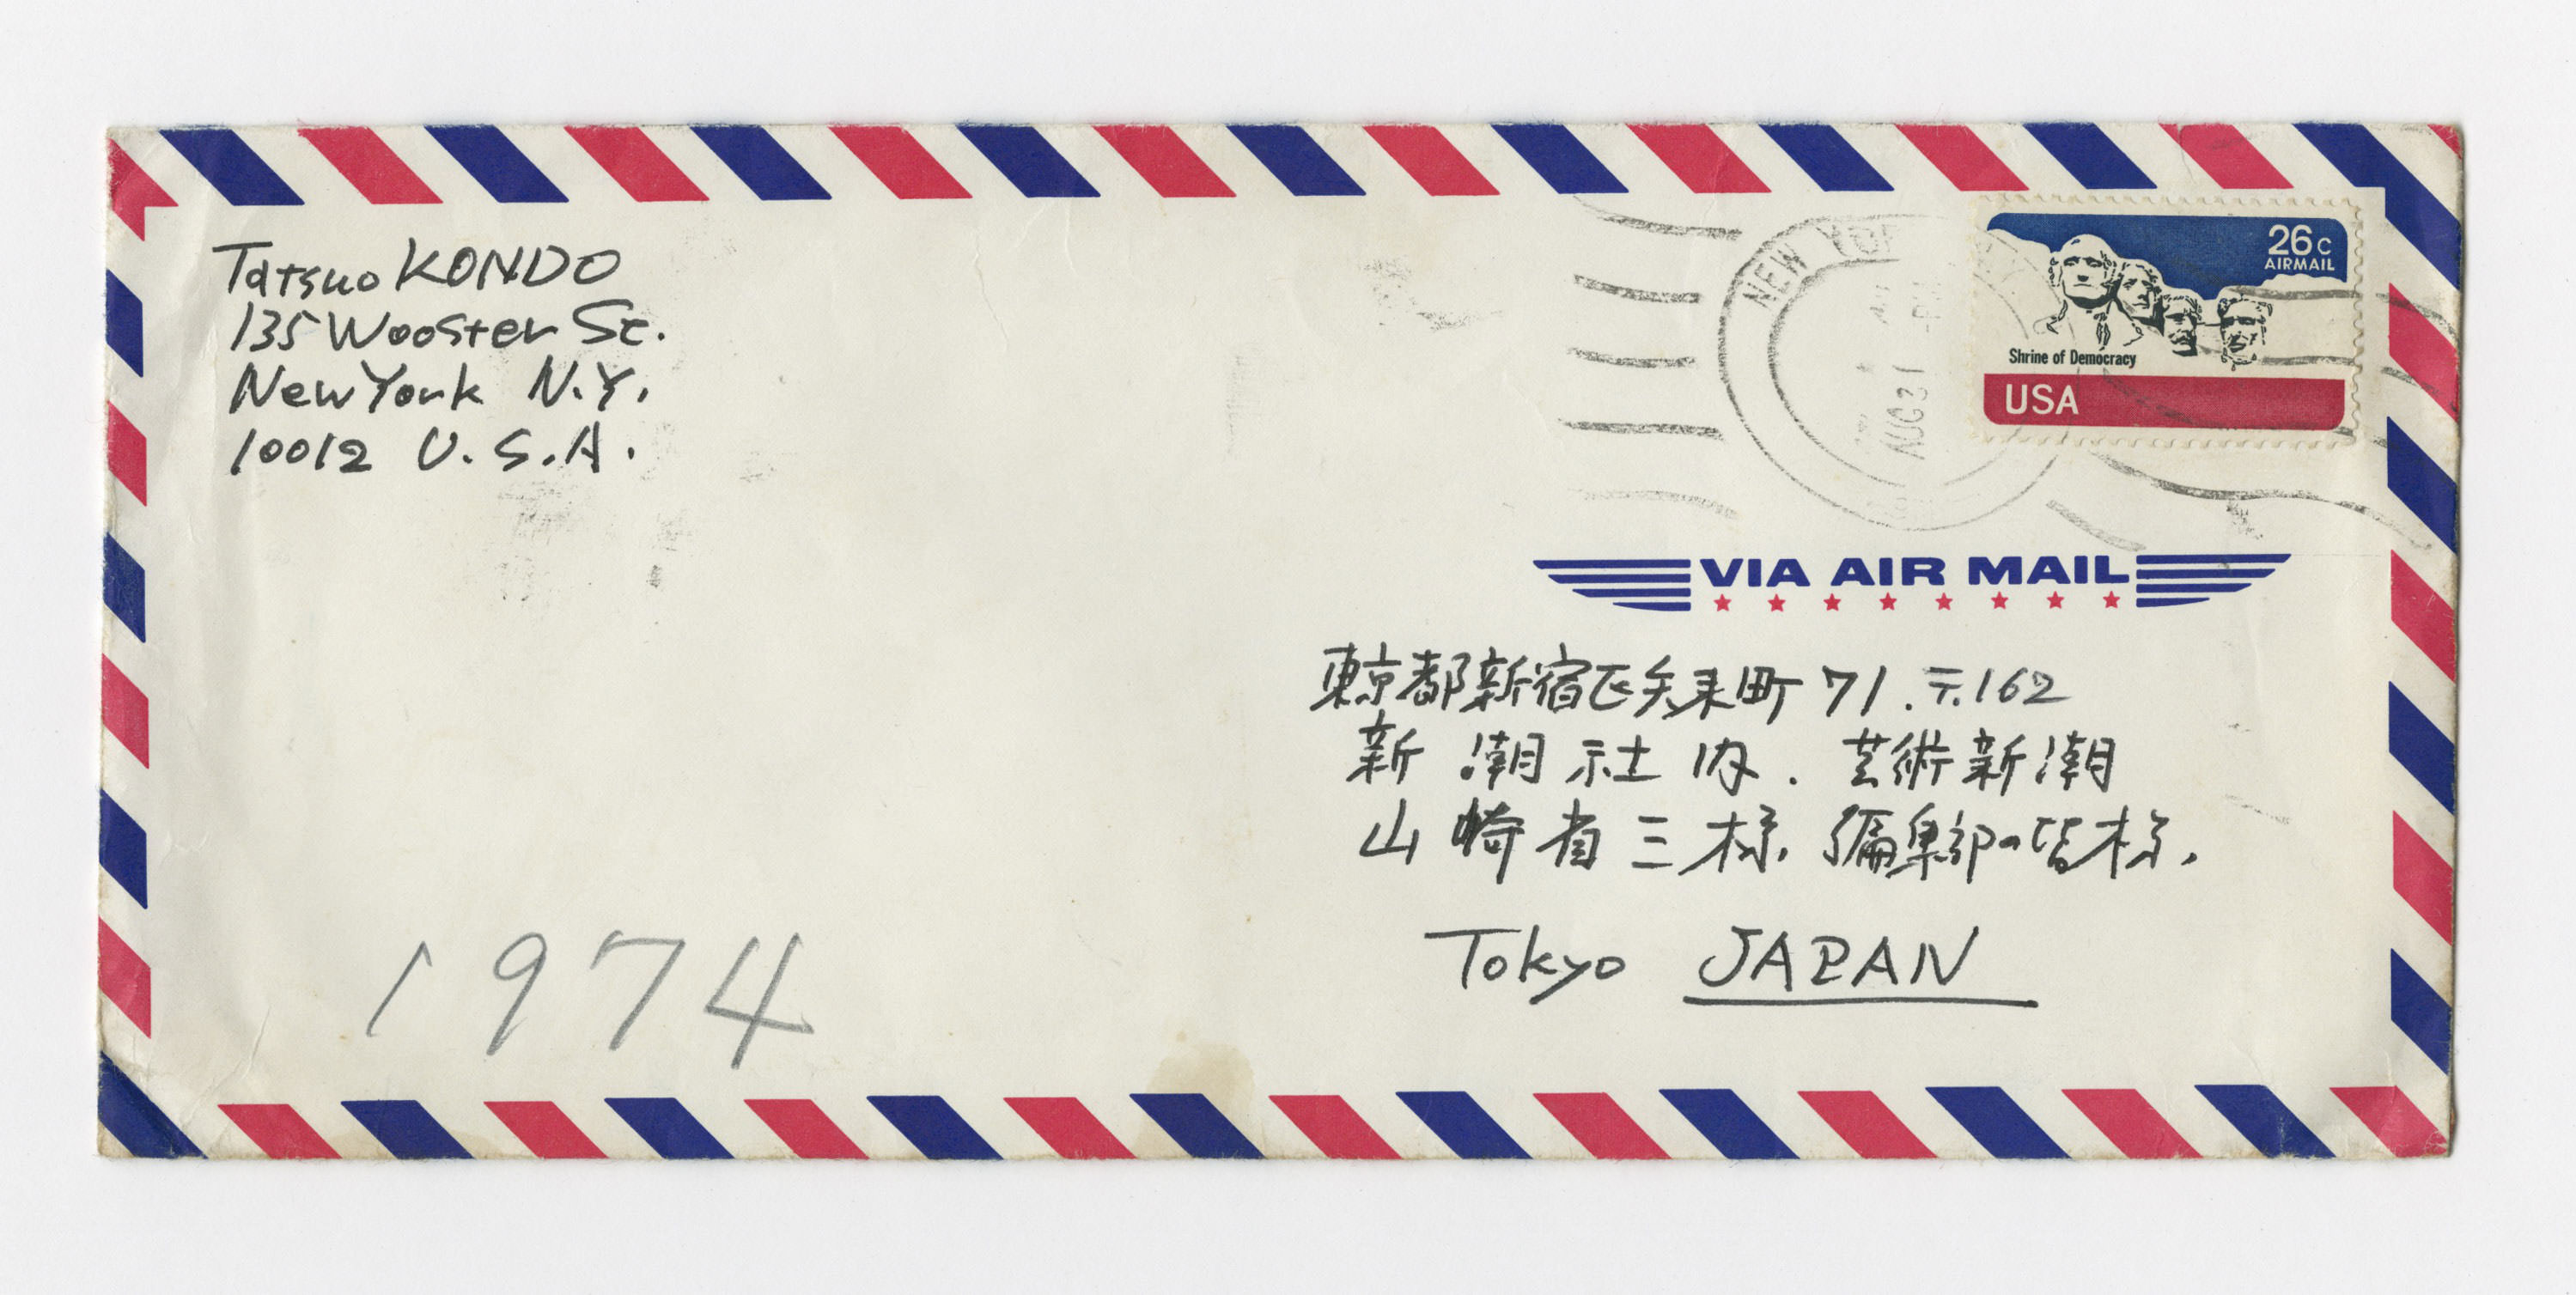 Tatsuo KONDO
135 Wooster St.
New York N.Y.
10012 U.S.A.
NEW YOR
AUG 31
26c
AIRMAIL
Shrine of Democracy
USA
VIA AIR MAIL
東京都新宿区矢来町71.〒162
新潮社内.芸術新潮
山崎省三様.編集部の皆様.
Tokyo JAPAN
1974